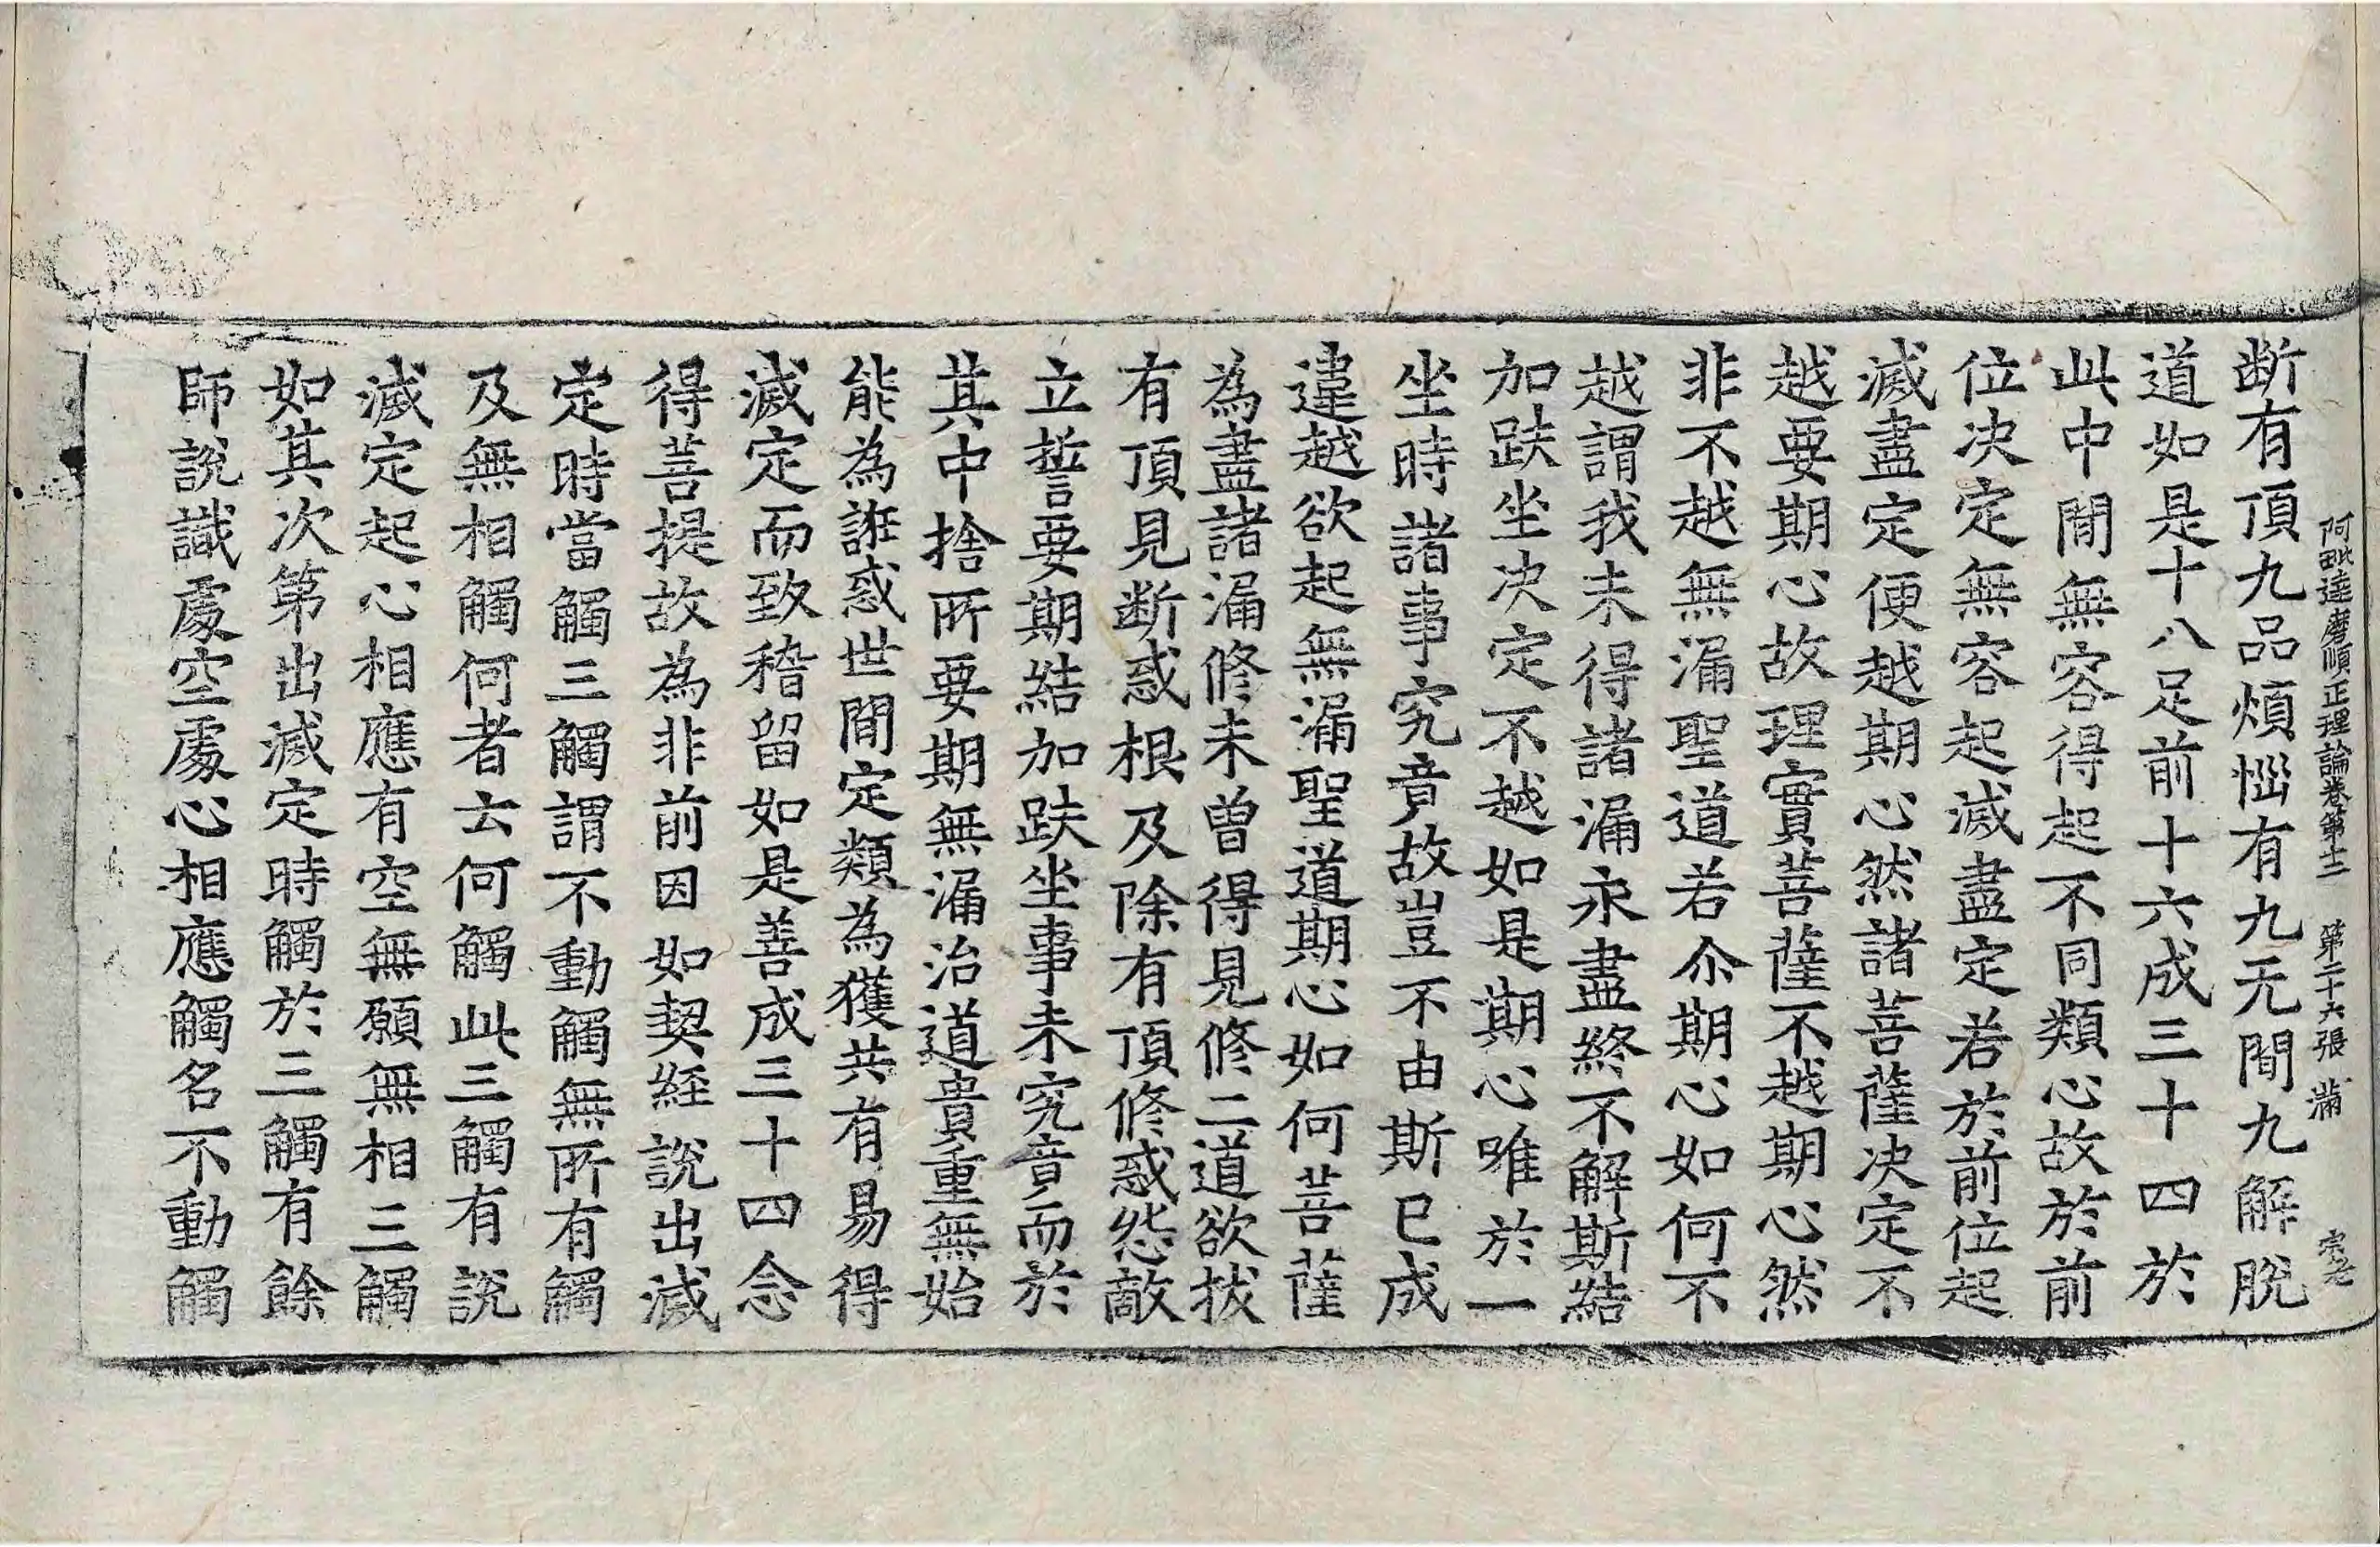 阿毗達磨順正理論卷第十二　第二十六張　滿
断有頂九品煩惱有九无間九解脫
道如是十八足前十六成三十四於
此中間無容得起不同類心故於前
位决定無容起滅盡定若於前位起
滅盡定便越期心然諸菩薩决定不
越要期心故理實菩薩不越期心然
非不越無漏聖道若尒期心如何不
越謂我未得諸漏永盡終不解斯結
加趺坐决定不越如是期心唯於一
坐時諸事究竟故豈不由斯已成
違越欲起無漏聖道期心如何菩薩
為盡諸漏修未曾得見修二道欲拔
有頂見断惑根及除有頂修惑怨敵
立誓要期結加趺坐事未究竟而於
其中捨所要期無漏治道貴重無始
能為誑惑世間定類為獲共有易得
滅定而致稽留如是善成三十四念
得菩提故為非前因如契經說出滅
定時當觸三觸謂不動觸無所有觸
及無相觸何者云何觸此三觸有說
滅定起心相應有空無願無相三觸
如其次第出滅定時觸於三觸有餘
師說識處空處心相應觸名不動觸